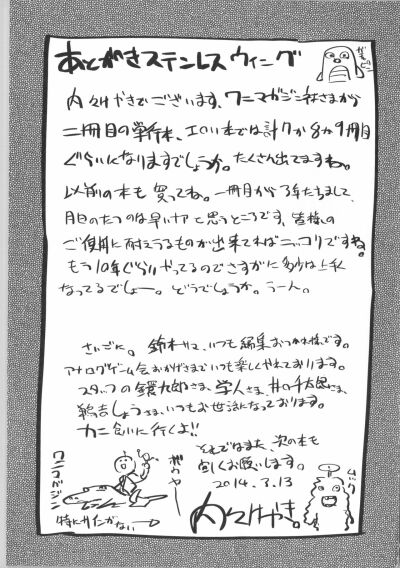 あとがきステンレスウィーング
内々けやきでございます、ワニマガジン社さまから
二冊目の単行本、エロい本では計7か8か9冊目
ぐらいになりますでしょうか。たくさん出てますね。
以前の本も買ってね。一冊目から3年たちまして、
月日のたつのは早いナァと思うところです、皆様の
ご使用に耐えうるものが出来てればニッコリですね。
もう10年ぐらいやってるのでさすがに多少は上手く
なってるでしょー。どうでしょうか。うーん。
さいごに。鈴木サマ、いつも編集おつかれ様です。
アナログゲーム会おかげさまでいつも楽しくやれております。
スタッフの鐚九郎さま、学人さま、井の千太郎さま、
鶏吉しょうさま、いつもお世話になっております。
カニ食いに行くよ!!
それではまた、次の本も
宜しくお願いします。
2014.3.13
内々けやき。
ワニマガジン
特にサイたがない